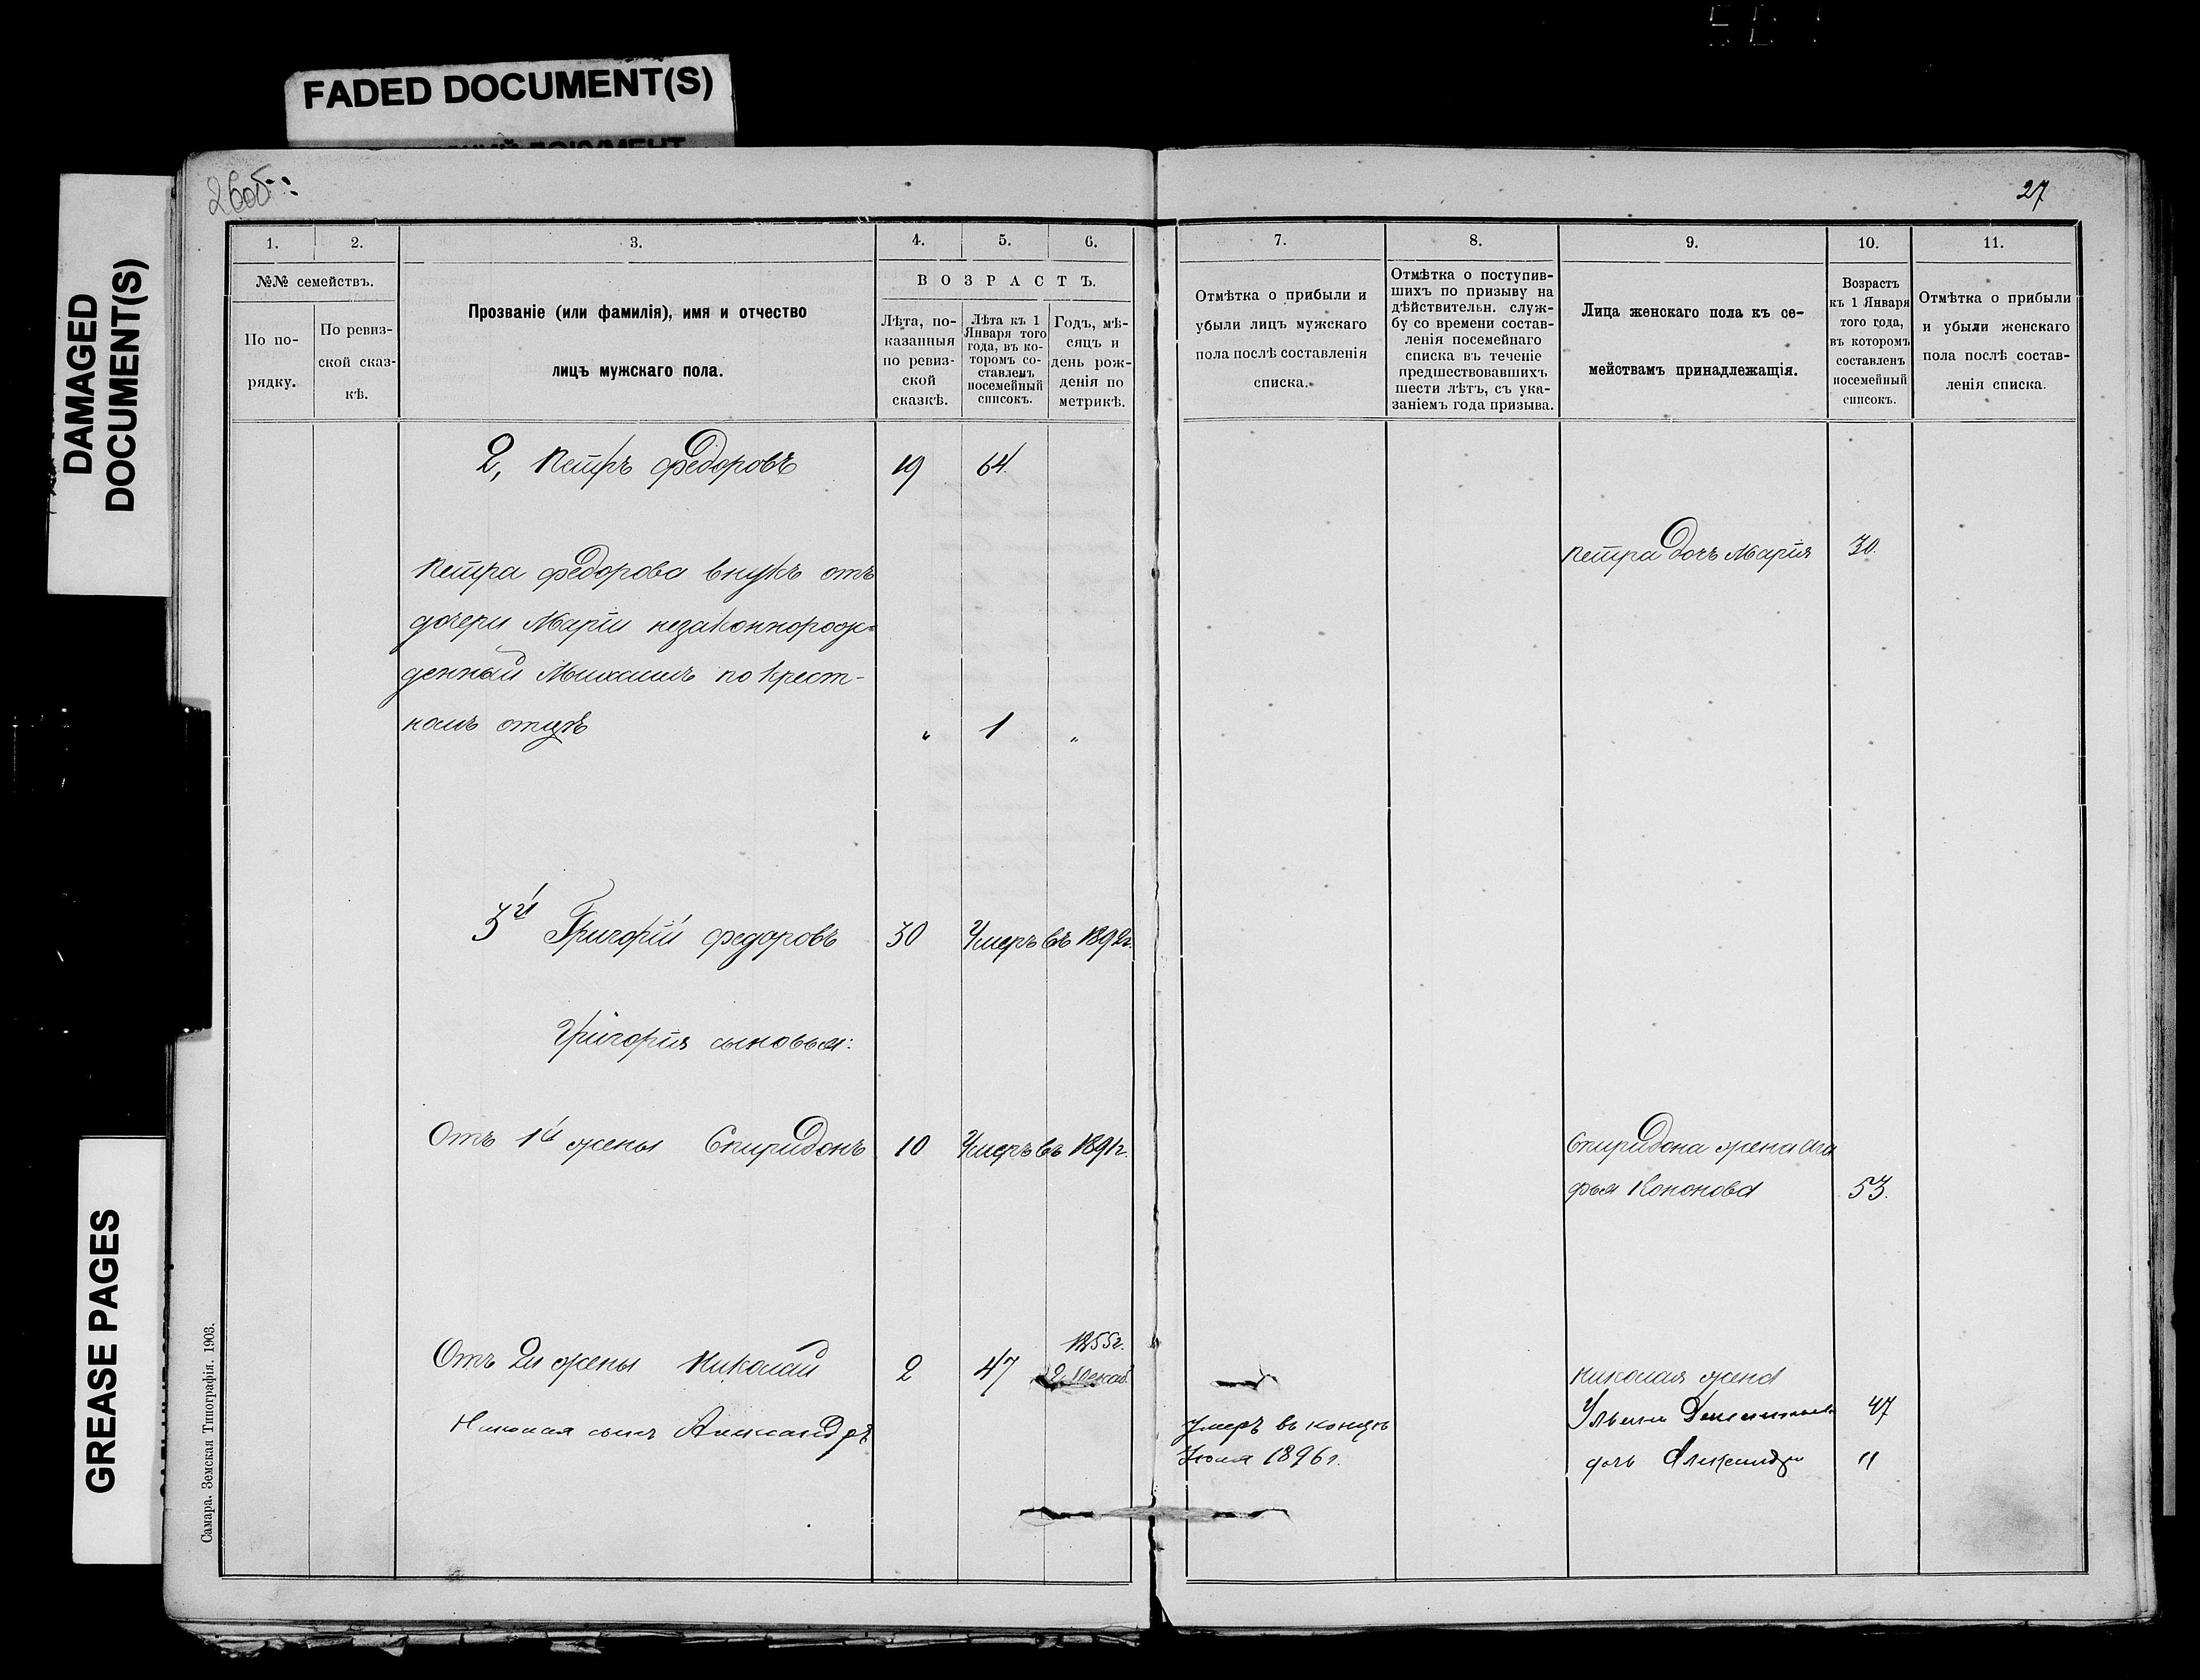 FADED DOCUMENT(S)
DAMAGED
DOCUMENT(S)
GREASE PAGES
27
1.
2.
3.
4.
5.
6.
№№ семействъ.
По по-
рядку.
По ревиз-
ской сказ-
кѣ.
Прозваніе (или фамилія), имя и отчество
лицъ мужскаго пола.
ВОЗРАСТЪ.
Лѣта, по-
казанныя
по ревиз-
ской
сказкѣ.
Лѣта къ 1
Января того
года, въ ко-
торомъ со-
ставленъ
посемейный
списокъ.
Годъ, мѣ-
сяцъ и
день рож-
денія по
метрикѣ.
7.
8.
9.
10.
11.
Отмѣтка о прибыли и
убыли лицъ мужскаго
пола послѣ составленія
списка.
Отмѣтка о поступив-
шихъ по призыву на
дѣйствительн. служ-
бу со времени состав-
ленія посемейнаго
списка въ теченіе
предшествовавшихъ
шести лѣтъ, съ ука-
заніемъ года призыва.
Лица женскаго пола къ се-
мействамъ принадлежащія.
Возрастъ
къ 1 Января
того года,
въ которомъ
составленъ
посемейный
списокъ.
Отмѣтка о прибыли
и убыли женскаго
пола послѣ состав-
ленія списка.
2, Петръ Федоровъ 19 64.
Петра дочь Марія 30.
Петра Федорова внукъ отъ
дочери Маріи незаконнорож-
денный Михаилъ по крест-
номъ отцѣ „ 1 „
3й Григорій Федоровъ 30 Умеръ въ 1892г.
Григорія сыновья:
Отъ 1й жены Спиридонъ 10 Умеръ въ 1891г.
Спиридона жена Ага
фья Кононова 53.
1855г.
Отъ 2й жены Николай 2 47 2 Декаб.
Николая жена
Николая сынъ Александръ
Умеръ въ концѣ
Іюля 1896г.
47
дочь Александра 11
Самара. Земская Типографія. 1903.